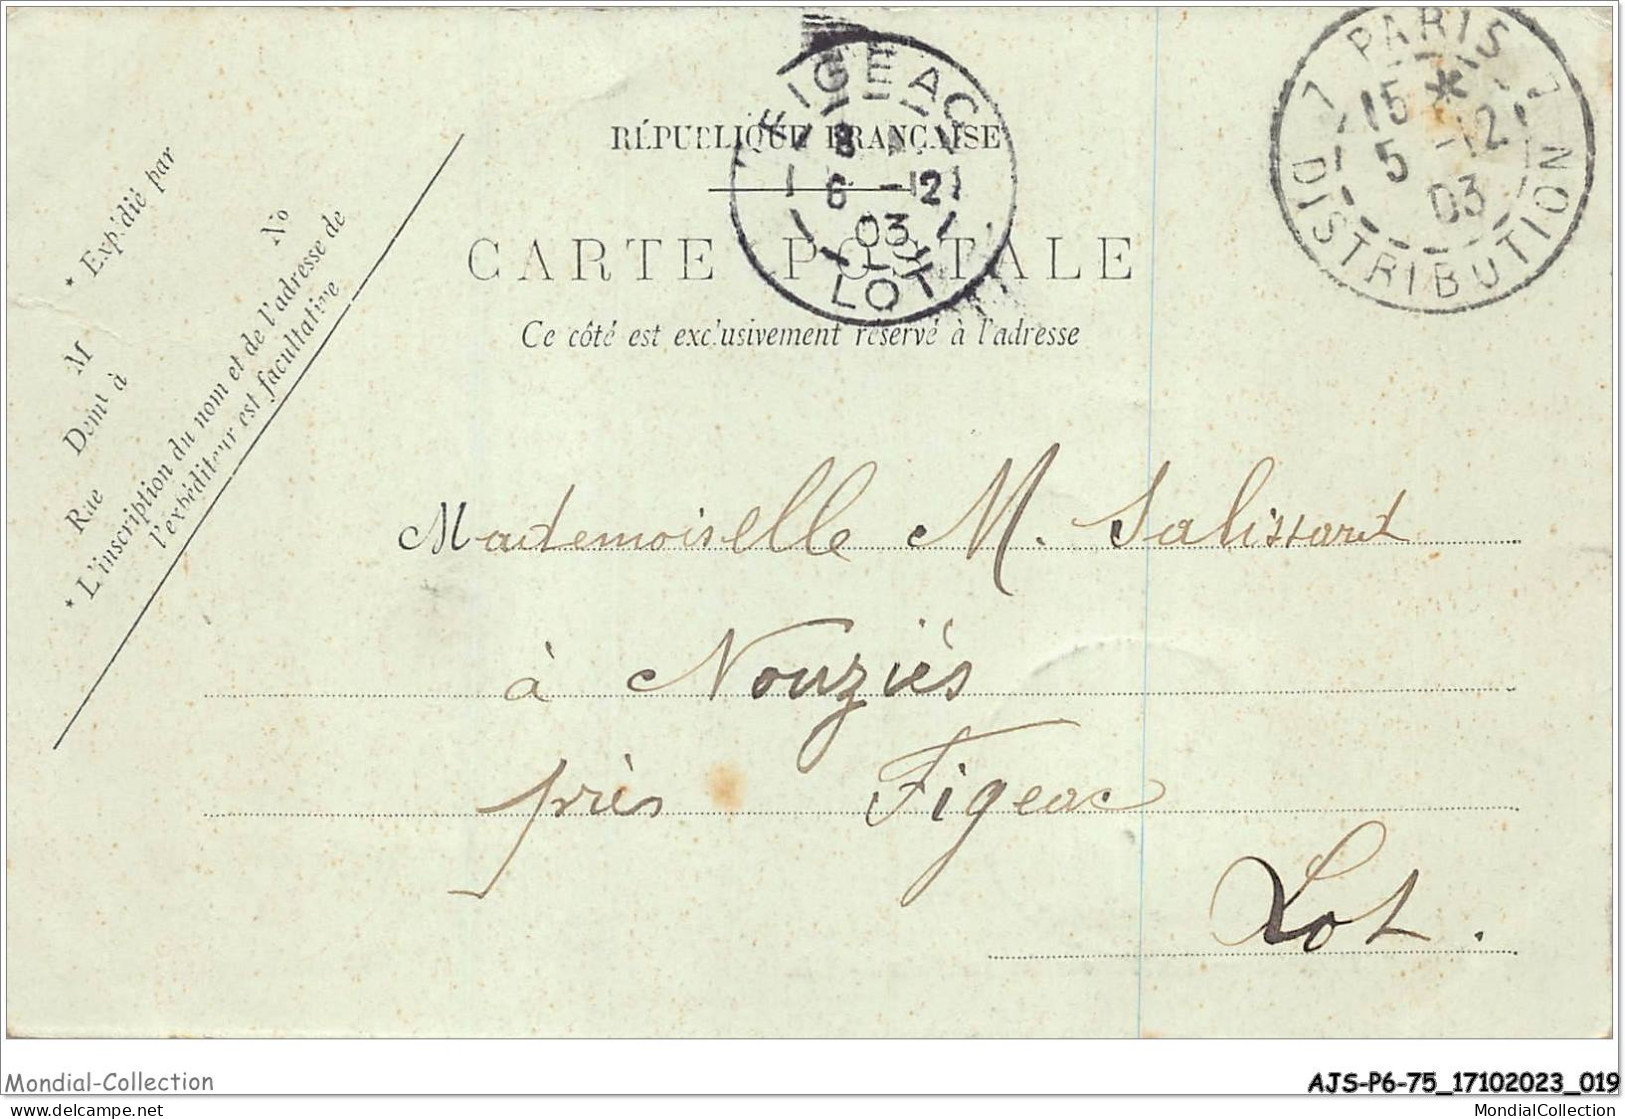 RÉPUBLIQUE FRANÇAISE
CARTE POSTALE
Ce côté est exclusivement réservé à l'adresse
FIGEAC
8
6 -12
03
LOT
PARIS
7 7
15 *
5 -12
03
DISTRIBUTION
* Expédié par
M
Demt à
Rue No
* L'inscription du nom et de l'adresse de
l'expéditeur est facultative
Mademoiselle M. Salissard
à Nouziés
près Figeac
Lot.
Mondial-Collection
AJS-P6-75_17102023_019
delcampe.net
MondialCollection